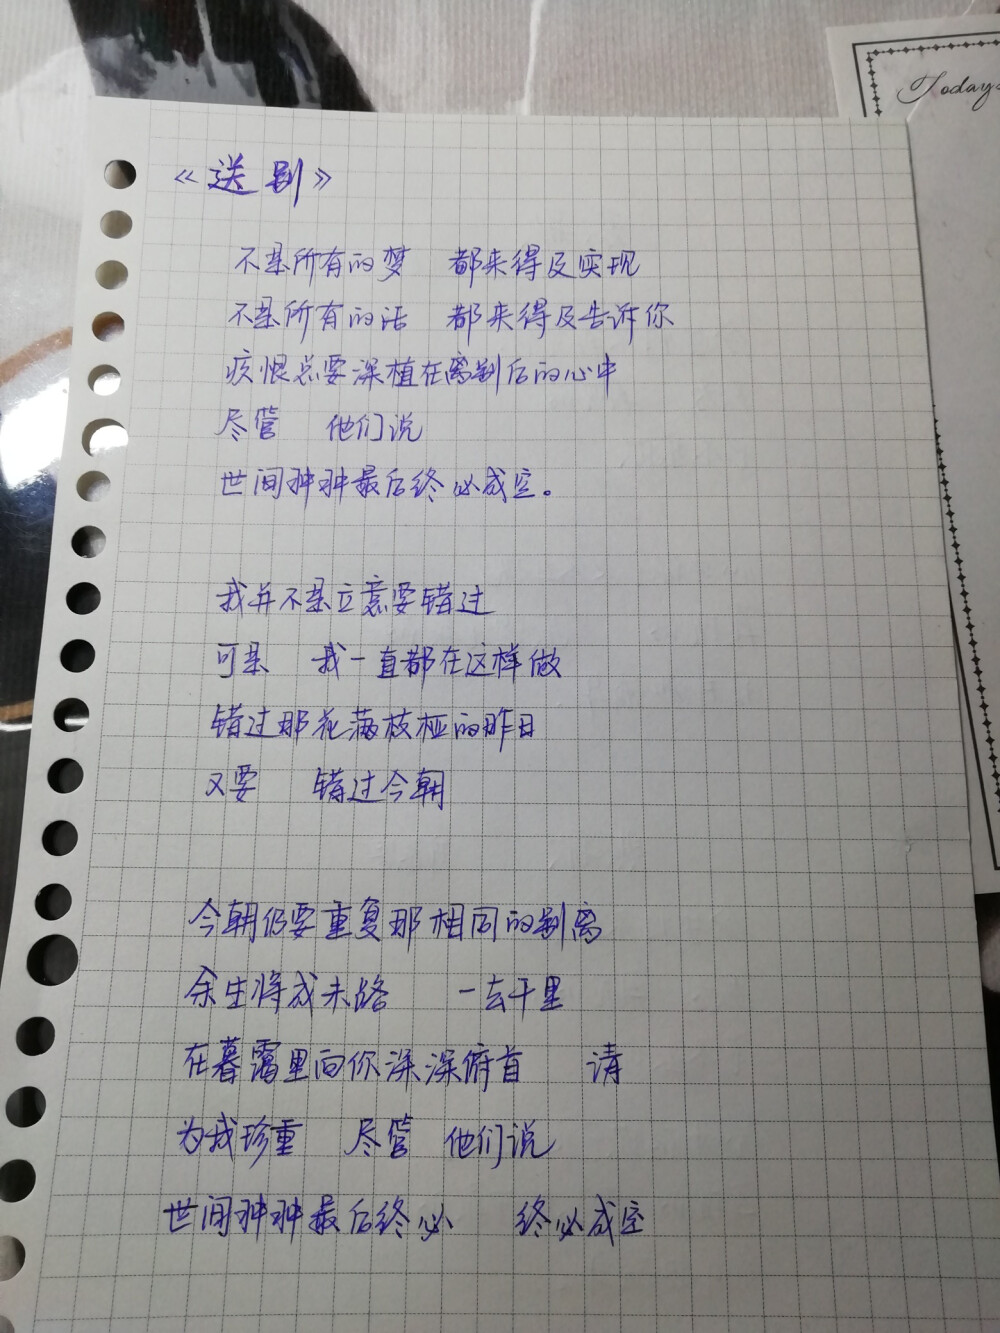 《送别》
不是所有的梦 都来得及实现
不是所有的话 都来得及告诉你
疚恨总要深植在离别后的心中
尽管 他们说
世间种种最后终必成空。
我并不是立意要错过
可是 我一直都在这样做
错过那花满枝桠的昨日
又要 错过今朝
今朝仍要重复那相同的别离
余生将成末路 一去千里
在暮霭里向你深深俯首 请
为我珍重 尽管 他们说
世间种种最后终必 终必成空
Today